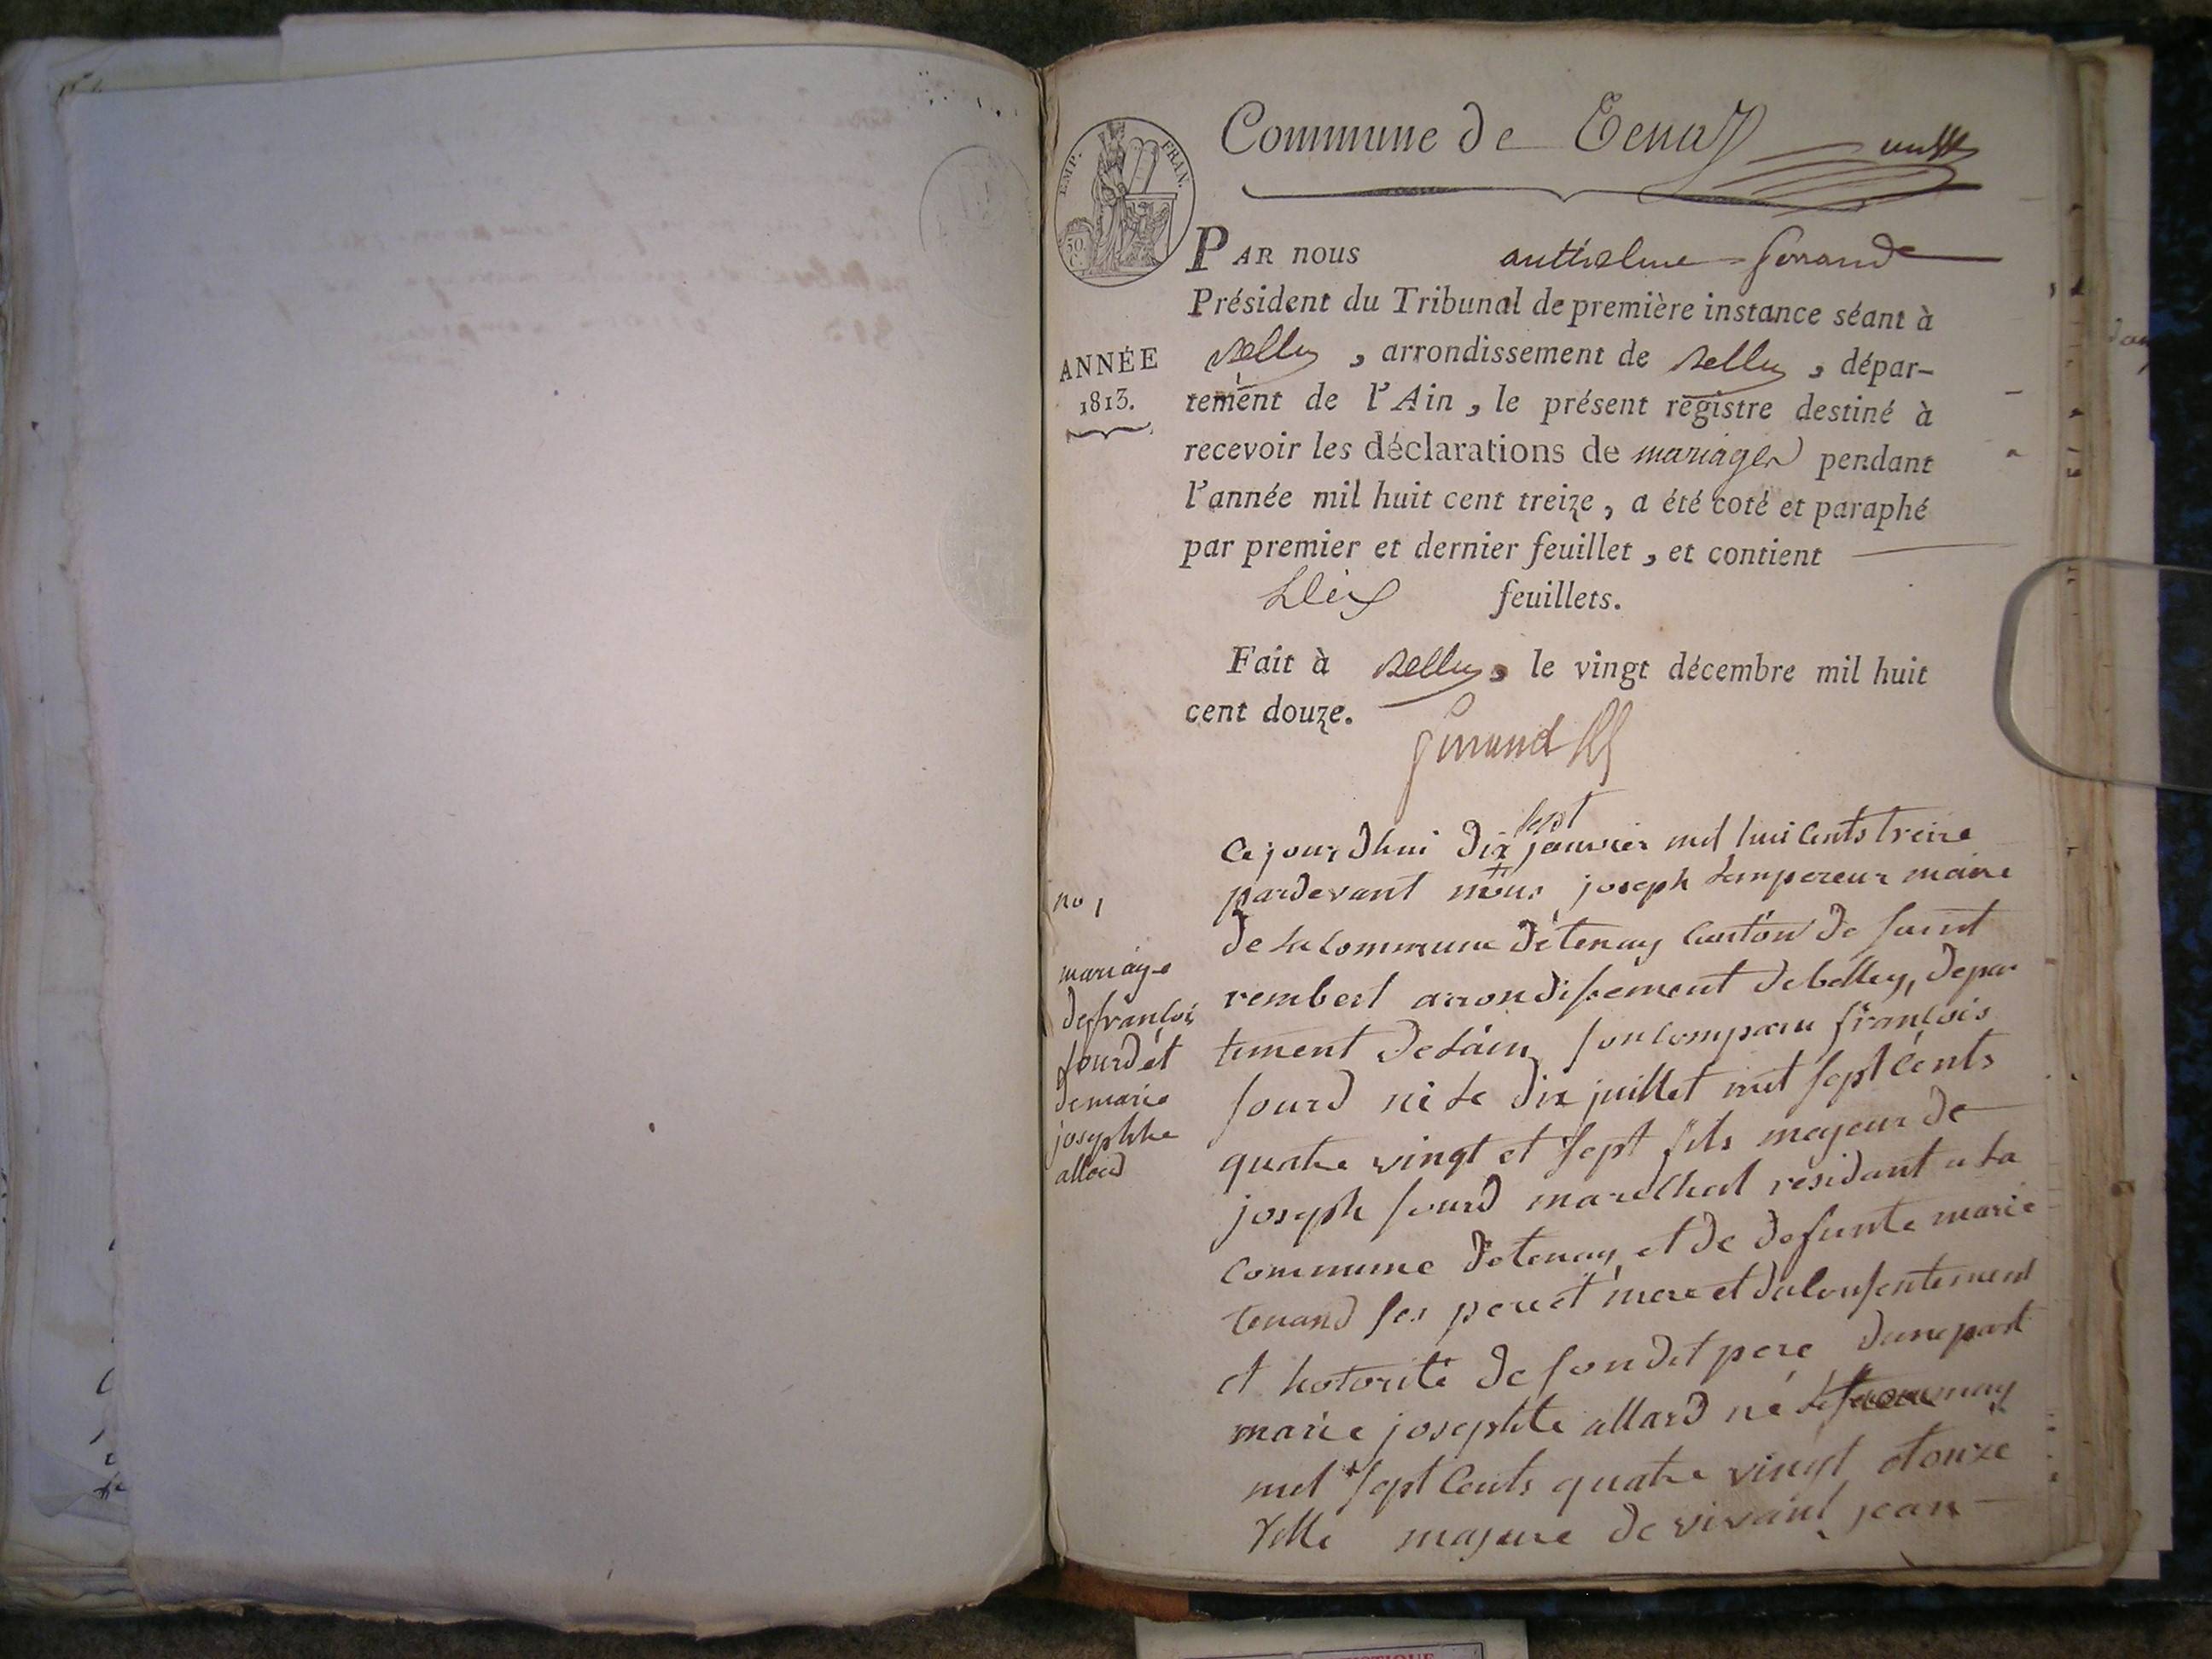 Commune de Tenay
EMP. FRAN.
50 C.
PAR nous anthelme
Président du Tribunal de première instance séant à
Belley, arrondissement de Belley, dépar-
tement de l'Ain, le présent registre destiné à
recevoir les déclarations de mariages pendant
l'année mil huit cent treize, a été coté et paraphé
par premier et dernier feuillet, et contient
Dix feuillets.
Fait à Belley, le vingt décembre mil huit
cent douze.
ANNÉE
1813.
no 1
mariage
de françois
sourd et
de marie
josephte
allard
Ce jourdhui dix sept janvier mil huit Cents treize
pardevant nous joseph Lempereur maire
de La Commune détenay Canton de saint
rembert arrondissement de belley, depar
tement de Lain son comparu françois
sourd né Le dix juillet mil sept Cents
quatre vingt et sept fils mageur de
joseph sourd marechal residant a La
Commune detenay et de defunte marie
tenand ses pere et mere et du Consentement
et hotorité de son dit pere dune part
marie josephte allard né Le may
mil sept Cents quatre vingt et onze
fille majeure de vivant jean